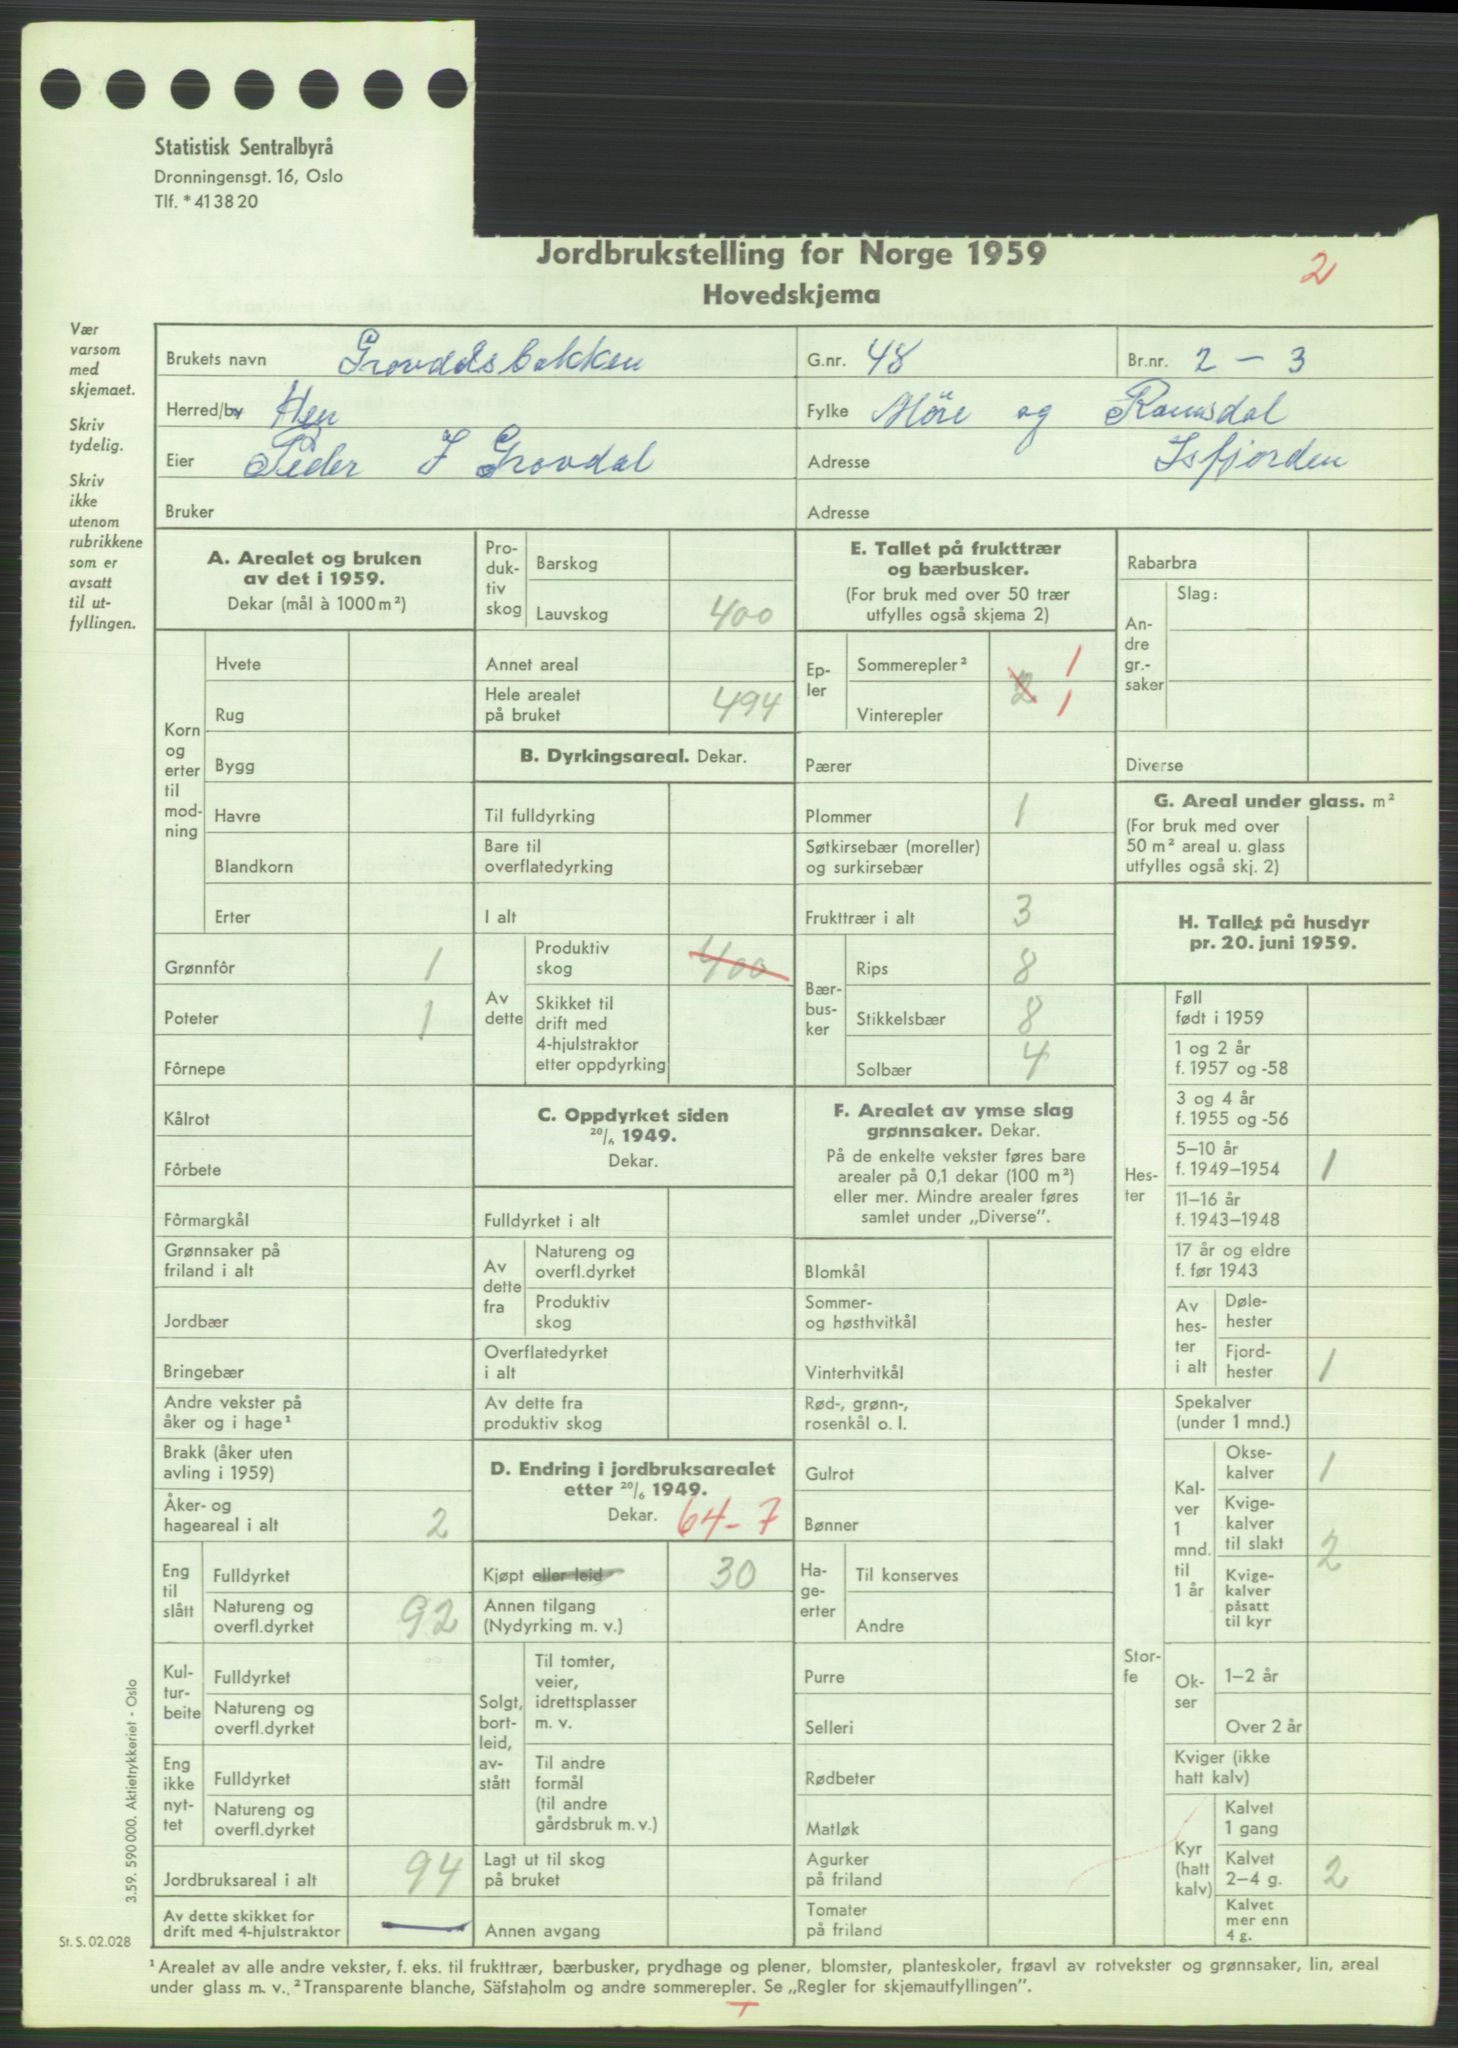 Statistisk Sentralbyrå
Dronningensgt. 16, Oslo
Tlf. * 41 38 20
Jordbrukstelling for Norge 1959
2
Hovedskjema
Vær
varsom
med
skjemaet.
Skriv
tydelig.
Skriv
ikke
utenom
rubrikkene
som er
avsatt
til ut-
fyllingen.
Brukets navn Grovdalsbakken G.nr. 48 Br.nr. 2 - 3
Herred/by Hen Fylke Möre og Romsdal
Eier Peder J Grovdal Adresse Isfjorden
Bruker Adresse
A. Arealet og bruken
av det i 1959.
Dekar (mål à 1000 m²)
Korn
og
erter
til
mod-
ning
Hvete
Rug
Bygg
Havre
Blandkorn
Erter
Grønnfôr 1
Poteter 1
Fôrnepe
Kålrot
Fôrbete
Fôrmargkål
Grønnsaker på
friland i alt
Jordbær
Bringebær
Andre vekster på
åker og i hage¹
Brakk (åker uten
avling i 1959)
Åker- og
hageareal i alt 2
Eng
til
slått
Fulldyrket
Natureng og
overfl.dyrket 92
Kul-
tur-
beite
Fulldyrket
Natureng og
overfl.dyrket
Eng
ikke
nyt-
tet
Fulldyrket
Natureng og
overfl.dyrket
Jordbruksareal i alt 94
Av dette skikket for
drift med 4-hjulstraktor —
Pro-
duk-
tiv
skog
Barskog
Lauvskog 400
Annet areal
Hele arealet
på bruket 494
B. Dyrkingsareal. Dekar.
Til fulldyrking
Bare til
overflatedyrking
I alt
Av
dette
Produktiv
skog 400
Skikket til
drift med
4-hjulstraktor
etter oppdyrking
C. Oppdyrket siden
20/6 1949.
Dekar.
Fulldyrket i alt
Av
dette
fra
Natureng og
overfl.dyrket
Produktiv
skog
Overflatedyrket
i alt
Av dette fra
produktiv skog
D. Endring i jordbruksarealet
etter 20/6 1949.
Dekar. 64-7
Kjøpt eller leid 30
Annen tilgang
(Nydyrking m. v.)
Solgt,
bort-
leid,
av-
stått
Til tomter,
veier,
idrettsplasser
m. v.
Til andre
formål
(til andre
gårdsbruk m. v.)
Lagt ut til skog
på bruket
Annen avgang
E. Tallet på frukttrær
og bærbusker.
(For bruk med over 50 trær
utfylles også skjema 2)
Ep-
ler
Sommerepler² 1
2
Vinterepler 1
Pærer
Plommer 1
Søtkirsebær (moreller)
og surkirsebær
Frukttrær i alt 3
Bær-
bus-
ker
Rips 8
Stikkelsbær 8
Solbær 4
F. Arealet av ymse slag
grønnsaker. Dekar.
På de enkelte vekster føres bare
arealer på 0,1 dekar (100 m²)
eller mer. Mindre arealer føres
samlet under „Diverse”.
Blomkål
Sommer-
og høsthvitkål
Vinterhvitkål
Rød-, grønn-,
rosenkål o. l.
Gulrot
Bønner
Ha-
ge-
erter
Til konserves
Andre
Purre
Selleri
Rødbeter
Matløk
Agurker
på friland
Tomater
på friland
Rabarbra
An-
dre
gr.-
saker
Slag:
Diverse
G. Areal under glass. m²
(For bruk med over
50 m² areal u. glass
utfylles også skj. 2)
H. Tallet på husdyr
pr. 20. juni 1959.
Hes-
ter
Føll
født i 1959
1 og 2 år
f. 1957 og -58
3 og 4 år
f. 1955 og -56
5–10 år
f. 1949–1954 1
11–16 år
f. 1943–1948
17 år og eldre
f. før 1943
Av
hes-
ter
i alt
Døle-
hester
Fjord-
hester 1
Stor-
fe
Spekalver
(under 1 mnd.)
Kal-
ver
1
mnd.
til
1 år
Okse-
kalver 1
Kvige-
kalver
til slakt 2
Kvige-
kalver
påsatt
til kyr
Ok-
ser
1–2 år
Over 2 år
Kviger (ikke
hatt kalv)
Kyr
(hatt
kalv)
Kalvet
1 gang
Kalvet
2–4 g. 2
Kalvet
mer enn
4 g.
3.59. 590 000. Aktietrykkeriet - Oslo
St. S. 02.028
¹ Arealet av alle andre vekster, f. eks. til frukttrær, bærbusker, prydhage og plener, blomster, planteskoler, frøavl av rotvekster og grønnsaker, lin, areal
under glass m. v. ² Transparente blanche, Säfstaholm og andre sommerepler. Se „Regler for skjemautfyllingen”.